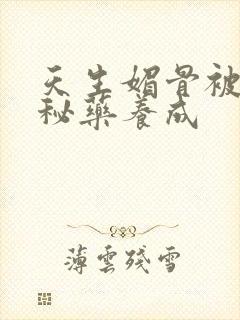 天生媚骨被
秘藥養成
薄雲殘雪